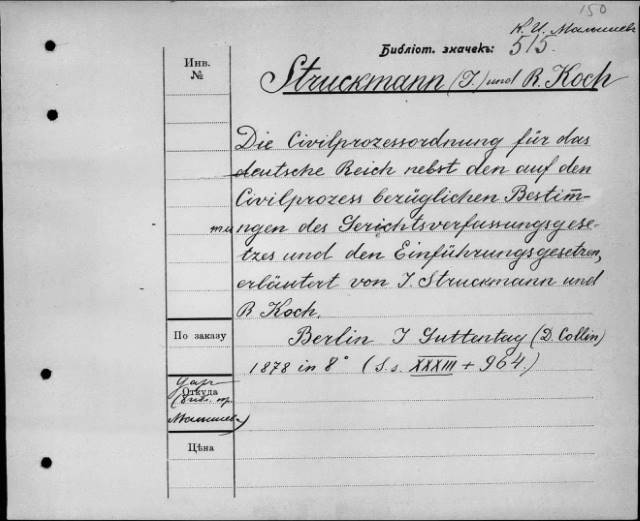 150
К. И. Малышев
Библіот. значекъ: 515.
Инв.
№
Struckmann (J.) und R. Koch
Die Civilprozessordnung für das
deutsche Reich nebst den auf den
Civilprozess bezüglichen Bestim̄-
mungen des Gerichtsverfassungsgese-
tzes und den Einführungsgesetzen,
erläutert von J. Struckmann und
R Koch.
По заказу
Berlin J Guttentag (D. Collin)
1878 in 8° (S.s. XXXIII + 964.)
Даръ
Откуда
Малышева)
Цѣна